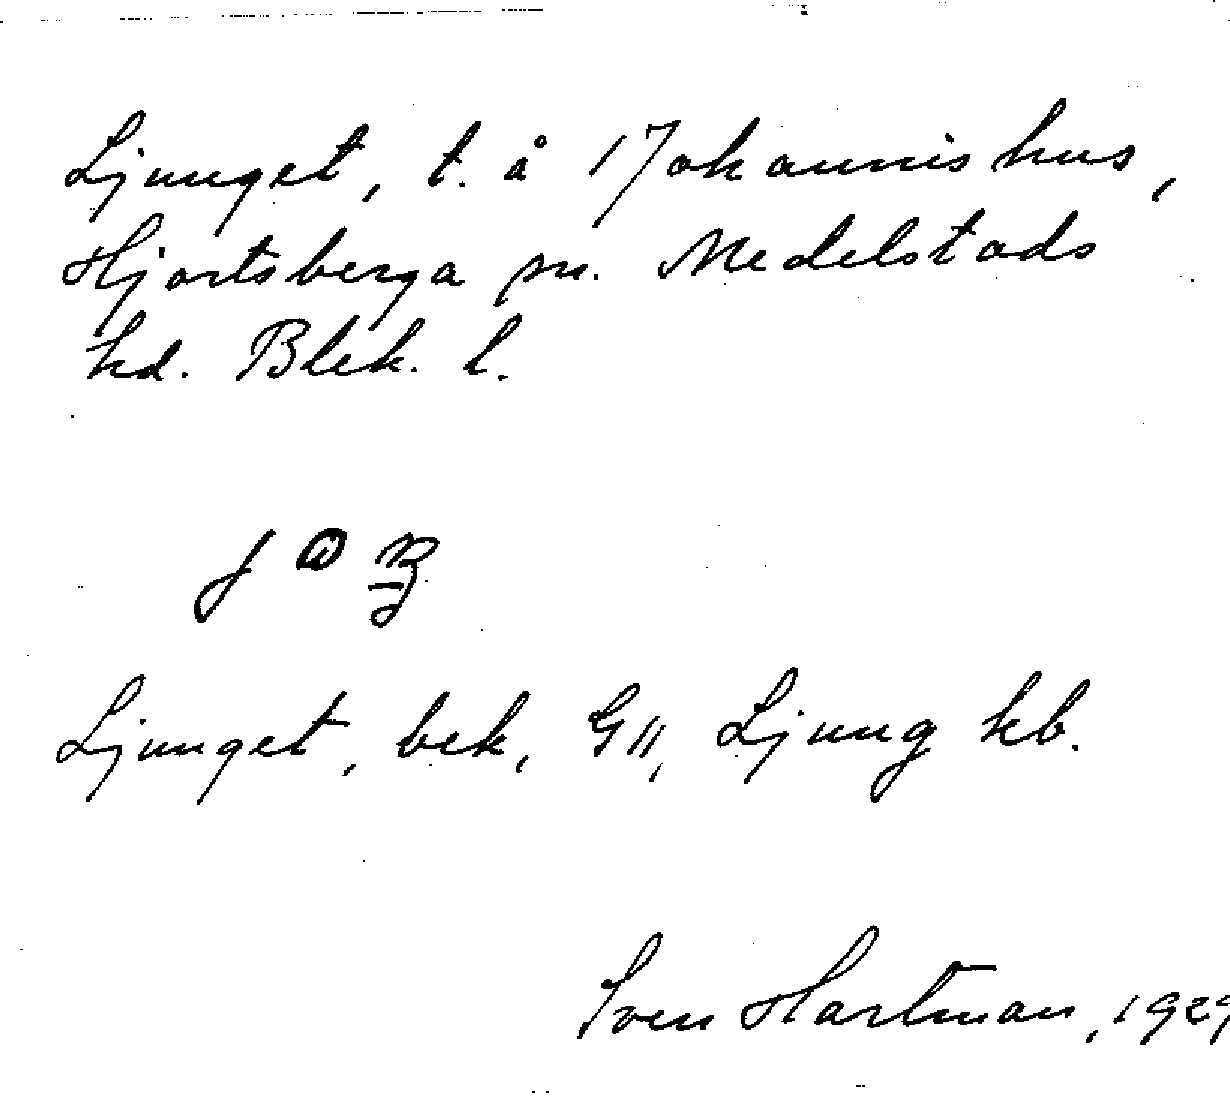 Ljunget, t. å 1 Johannishus,
Hjortsberga sn. Medelstads
hd. Blek. l.
Ljunget, bek, G11, Ljung kb.
Sven Hartman, 1929